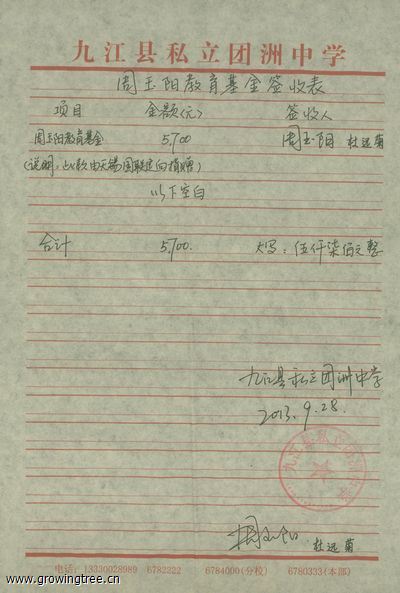 九江县私立团洲中学
周玉阳教育基金签收表
项目 金额(元) 签收人
周玉阳教育基金 5,700 周玉阳 杜远菊
(说明:此款由无锡国联定向捐赠)
以下空白
合计 5,700. 大写:伍仟柒佰元整
九江县私立团洲中学
2013.9.28.
九江县私立团洲中学
周玉阳 杜远菊
电话:13330028989 6782222 6784000(分校) 6780333(本部)
www.growingtree.cn